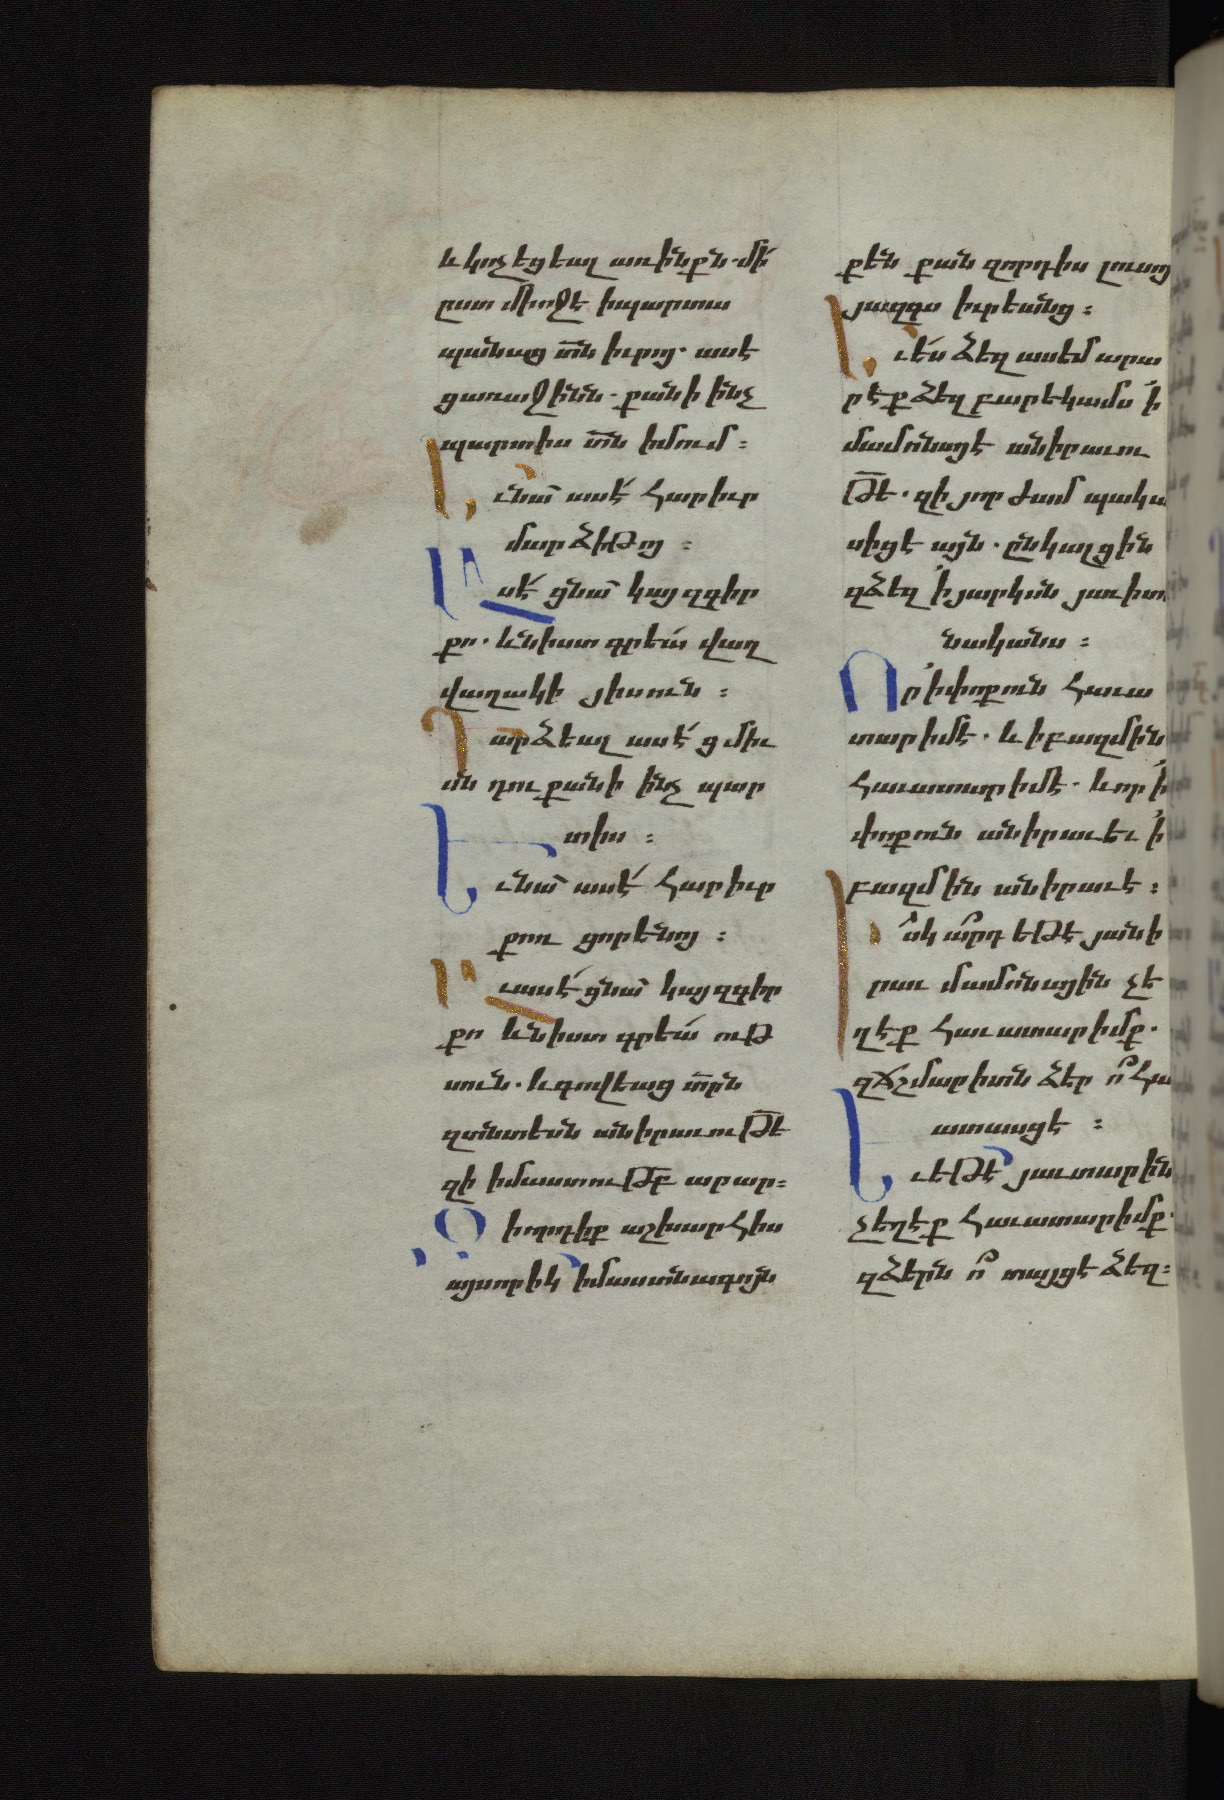 և կոչեցեալ առինքն. մի՛
ըստ միոջէ իպարտա
պանաց տն իւրոյ. ասէ
ցառաջինն. քանի ինչ
պարտիս տն իմում :
Եւ նա ասէ՛ հարիւր
մար ձիթոյ :
Ասէ՛ ցնա կալ զգիր
քո. և նիստ գրեա՛ վաղ
վաղակի յիսուն :
Դարձեալ ասէ՛ ց միւ
սն դու քանի ինչ պար
տիս :
Եւ նա ասէ՛ հարիւր
քոռ ցորենոյ :
Եւ ասէ՛ ցնա կալ զգիր
քո և նիստ գրեա՛ ութ
սուն. և գովեաց տրն
զտնտեսն անիրաւութե
զի իմաստութբ արար :
Զի որդիք աշխարհիս
այսորիկ իմաստնագոյն
քեն քան զորդիս լուսոյ
յազգս իւրեանց :
Եւ ե՛ս ձեզ ասեմ արա
րէք ձեզ բարեկամս ՛ի
մամոնայէ անիրաւու
թե. զի յորժամ պակա
սիցէ այն. ընկալցին
զձեզ ՛ի յարկսն յաւիտե
նականս :
Որ ՛ի փոքուն հաւա
տարիմ է. և ի բազմին
հաւատարիմ է. և որ ՛ի
փոքուն անիրաւ եւ ՛ի
բազմին անիրաւ է :
Իսկ արդ եթէ յանի
րաւ մամոնային չէ
ղէք հաւատարիմք.
զճշմարիտն ձեր ո՞ հա
ւատասցէ :
Եւ եթէ յաւտարին
չեղէք հաւատարիմք.
զձերն ո՞ տայցէ ձեզ :